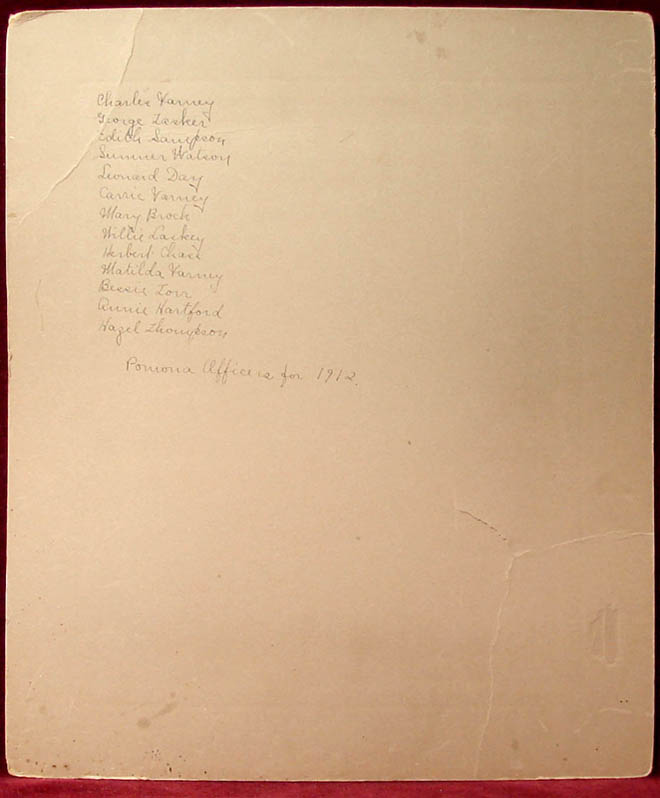 Charlie Varney
George Lesker
Edith Sampson
Sumner Watson
Leonard Day
Carrie Varney
Mary Brock
Willie Laskey
Herbert Chase
Matilda Varney
Bessie Torr
Annie Hartford
Hazel Thompson
Pomona Officers for 1912.